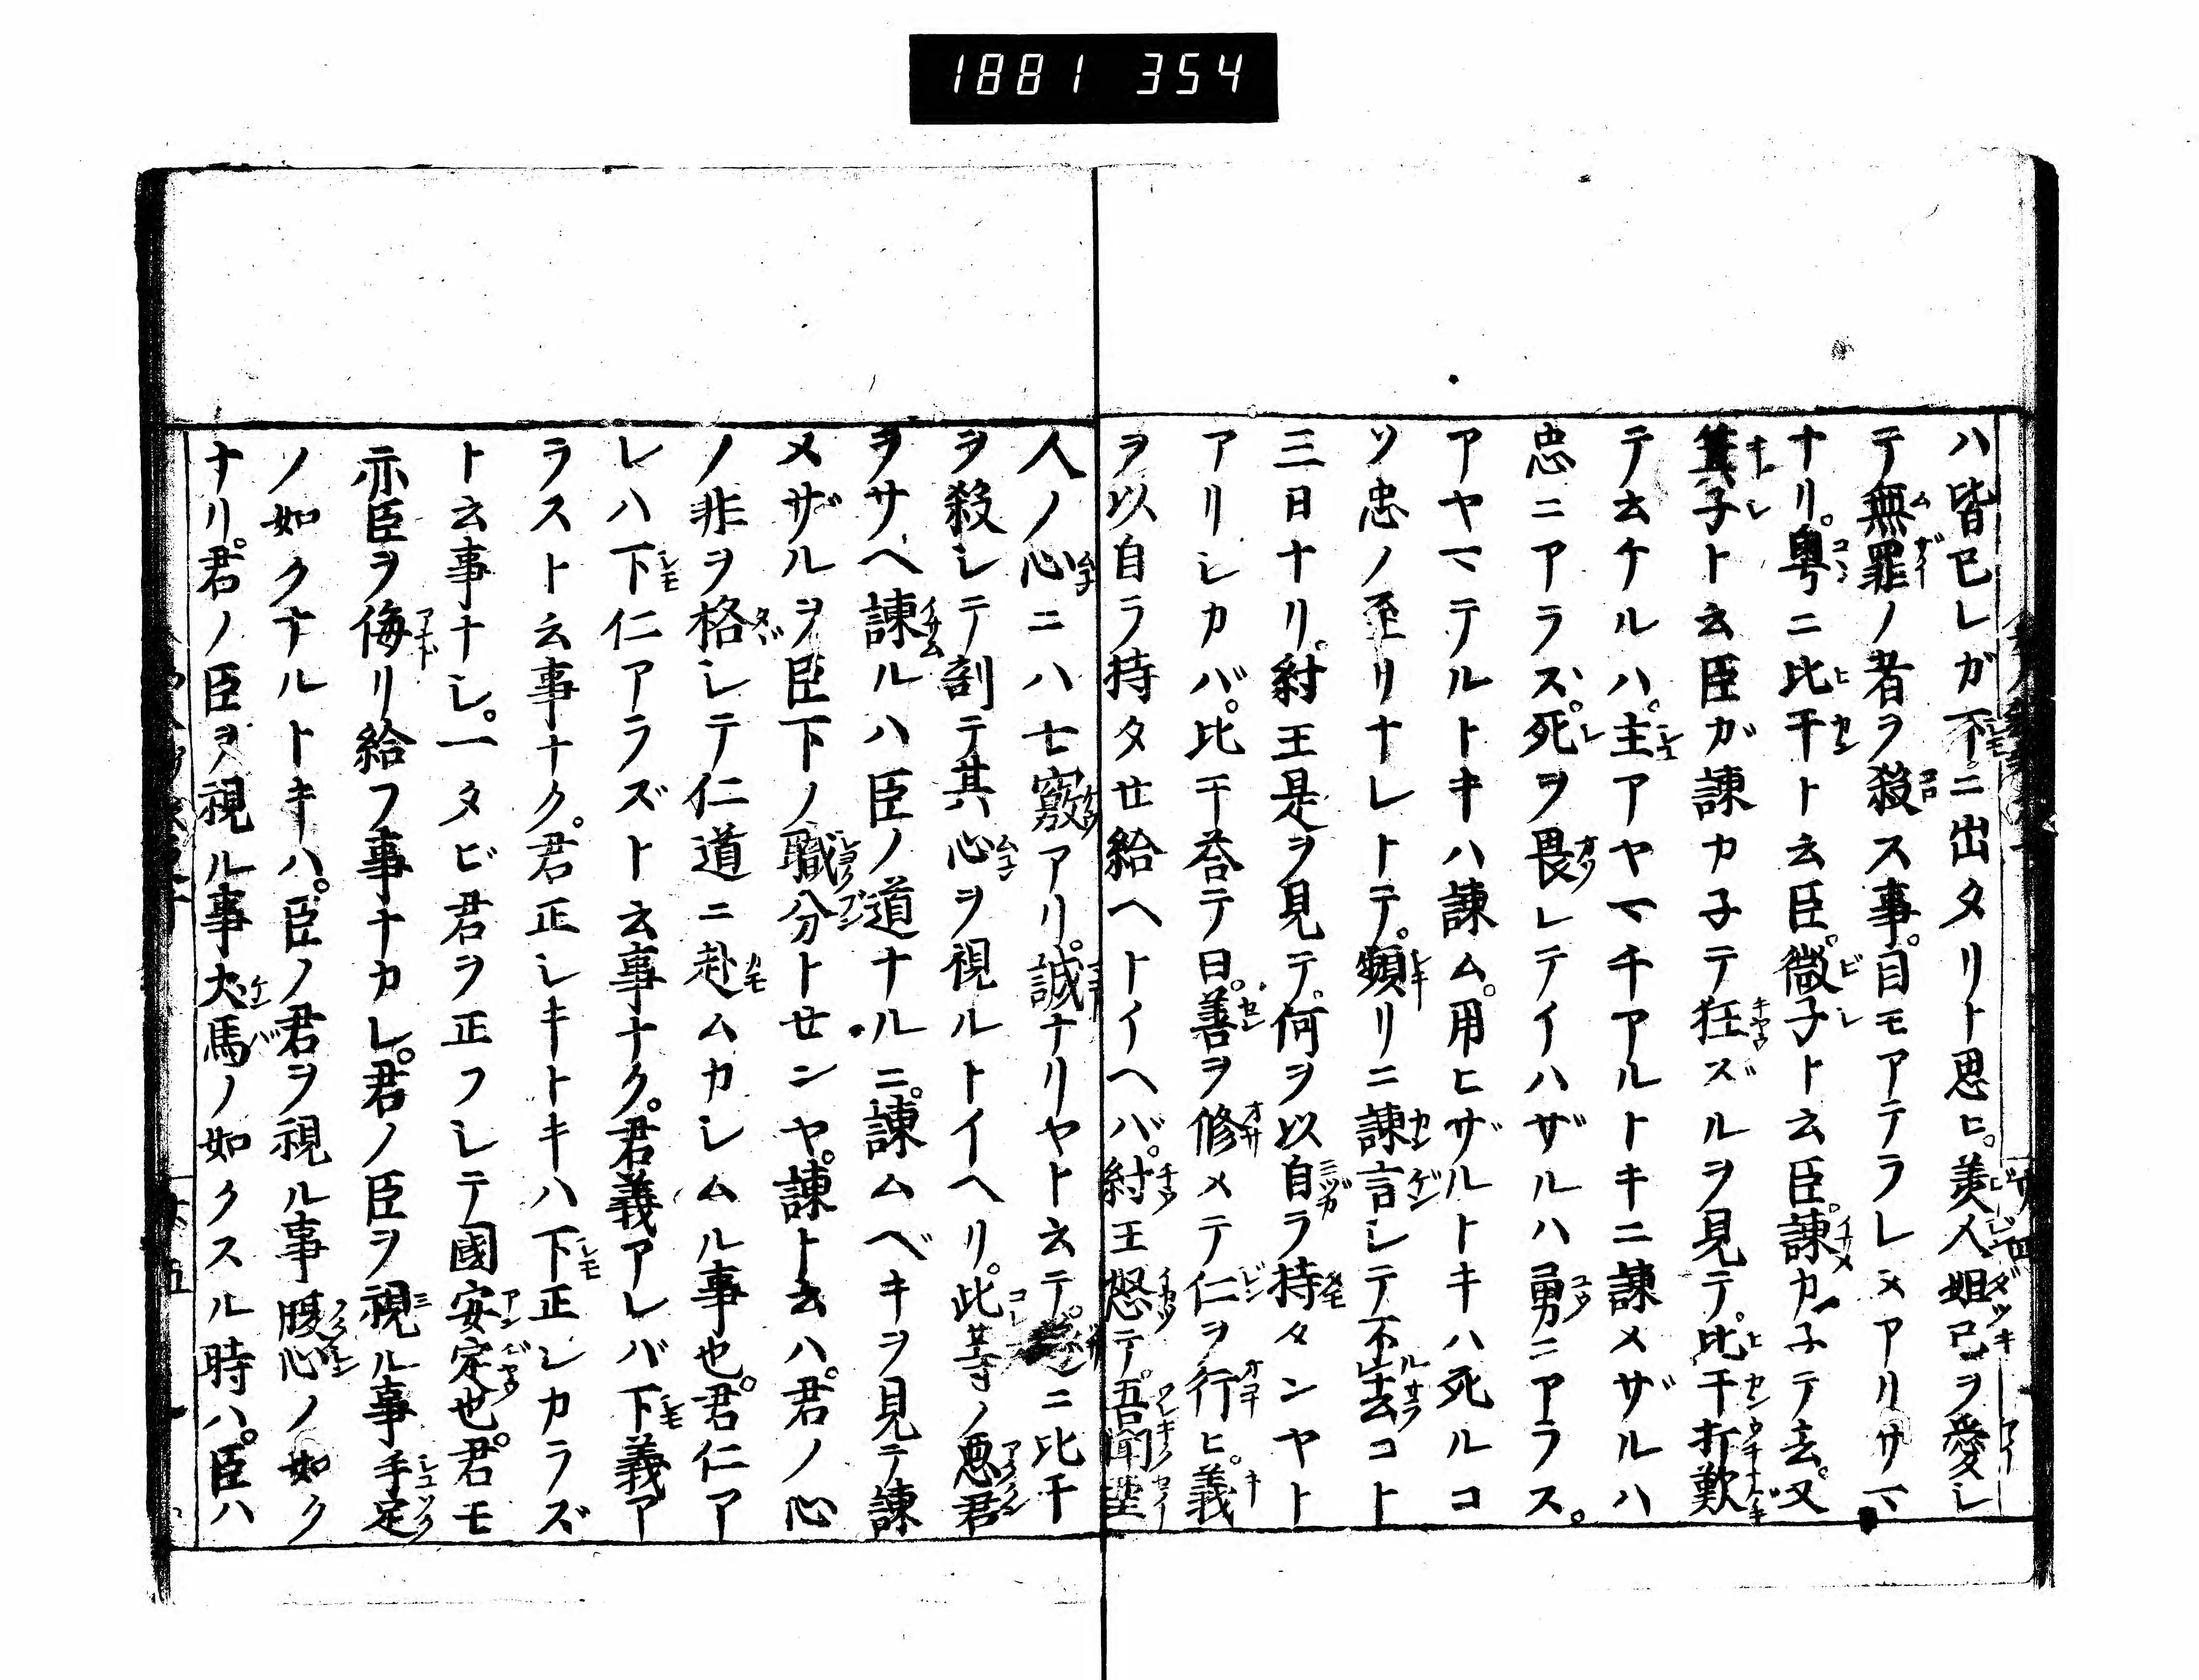 1881 354
ハ皆已レガ不ニ出タリト思ヒ。美人妲己ヲ愛シ
テ無罪ノ者ヲ殺ス事。目モアテラレヌアリサマ
ナリ。粤ニ比干ト云臣。微子ト云臣。諫カ子テ去。又
箕子ト云臣ガ諫カ子テ狂ズルヲ見テ。比干打歎
テ云ケルハ。主アヤマチアルトキニ諫メザルハ
忠ニアラス。死ヲ畏レテイハザルハ勇ニアラス。
アヤマテルトキハ諫ム。用ヒザルトキハ死ルコ
ソ忠ノ至リナレトテ。頻リニ諫言シテ不去コト
三日ナリ。紂王是ヲ見テ。何ヲ以自ラ持タンヤト
アリシカバ。比干荅テ曰。善ヲ修メテ仁ヲ行ヒ。義
ヲ以自ラ持タセ給ヘトイヘバ。紂王怒テ。吾聞聖
人ノ心ニハ七竅アリ。誠ナリヤト云テ。ニ比干
ヲ殺シテ剖テ其心ヲ視ルトイヘリ。此等ノ悪君
ヲサヘ諫ルハ臣ノ道ナルニ。諫ムベキヲ見テ諫
メザルヲ臣下ノ職分トセンヤ。諫ト云ハ。君ノ心
ノ非ヲ格シテ仁道ニ赴ムカシムル事也。君仁ア
レハ下仁アラズト云事ナク。君義アレバ下義ア
ラスト云事ナク。君正シキトキハ下正シカラズ
ト云事ナシ。一タビ君ヲ正フシテ國安定也。君モ
亦臣ヲ侮リ給フ事ナカレ。君ノ臣ヲ視ル事手足
ノ如クナルトキハ。臣ノ君ヲ視ル事腹心ノ如ク
ナリ。君ノ臣ヲ視ル事犬馬ノ如クスル時ハ。臣ハ